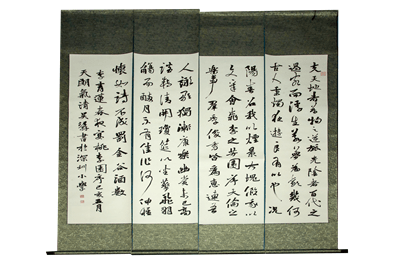 夫天地者萬物之逆旅光陰者百代之
過客而浮生若夢為歡幾何
古人秉燭夜遊良有以也況
陽春召我以煙景大塊假我以
文章會桃李之芳園序天倫之
樂事群季俊秀皆為惠連吾
人詠歌獨慚康樂幽賞未已高
談轉清開瓊筵以坐花飛羽
觴而醉月不有佳作何伸雅
懷如詩不成罰金谷酒數
李青蓮春夜宴桃李園序 五月
天朗氣清 書於深圳小學